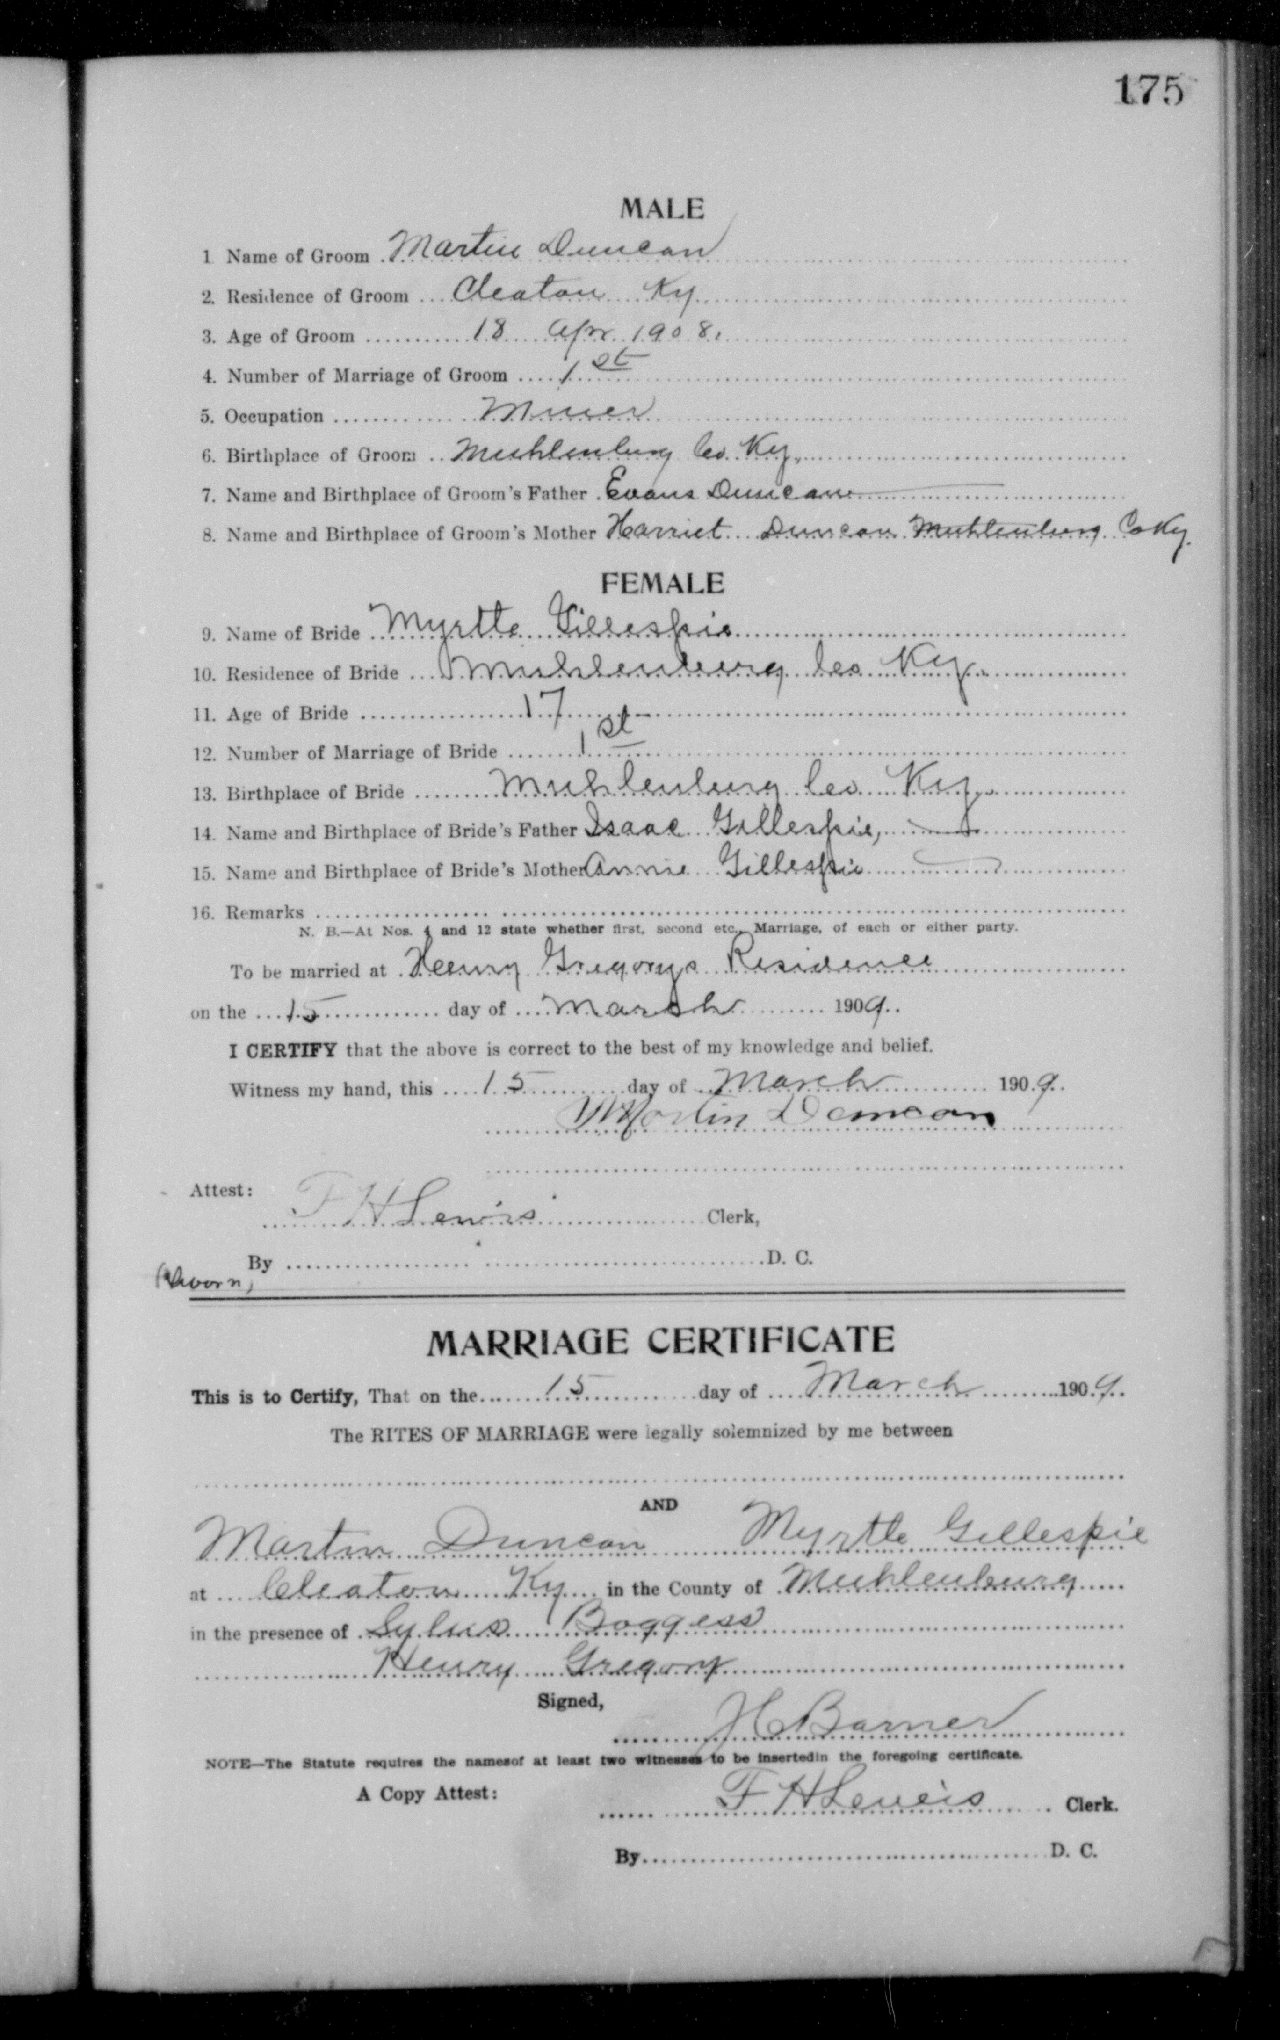 175
MALE
1 Name of Groom Martin Duncan
2. Residence of Groom Cleaton Ky
3. Age of Groom 18 Apr. 1908.
4. Number of Marriage of Groom 1st
5. Occupation Miner
6. Birthplace of Groom Muhlenburg Co. Ky.
7. Name and Birthplace of Groom's Father Evans Duncan
8. Name and Birthplace of Groom's Mother Harriet Duncan Muhlenburg Co Ky.
FEMALE
9. Name of Bride Myrtle Gillespie
10. Residence of Bride Muhlenburg Co Ky.
11. Age of Bride 17
12. Number of Marriage of Bride 1st
13. Birthplace of Bride Muhlenburg Co. Ky.
14. Name and Birthplace of Bride's Father Isaac Gillespie,
15. Name and Birthplace of Bride's Mother Annie Gillespie
16. Remarks
N. B.—At Nos. 4 and 12 state whether first, second etc., Marriage, of each or either party.
To be married at Henry Gregorys Residence
on the 15 day of March 1909.
I CERTIFY that the above is correct to the best of my knowledge and belief.
Witness my hand, this 15 day of March 1909.
Martin Duncan
Attest:
F H Lewis Clerk,
By D. C.
(Sworn)
MARRIAGE CERTIFICATE
This is to Certify, That on the 15 day of March 1909.
The RITES OF MARRIAGE were legally solemnized by me between
AND
Martin Duncan Myrtle Gillespie
at Cleaton Ky in the County of Muhlenburg
in the presence of Sylus Boggess
Henry Gregory
Signed,
J C Barner
NOTE—The Statute requires the namesof at least two witnesses to be insertedin the foregoing certificate.
A Copy Attest:
F H Lewis Clerk.
By D. C.